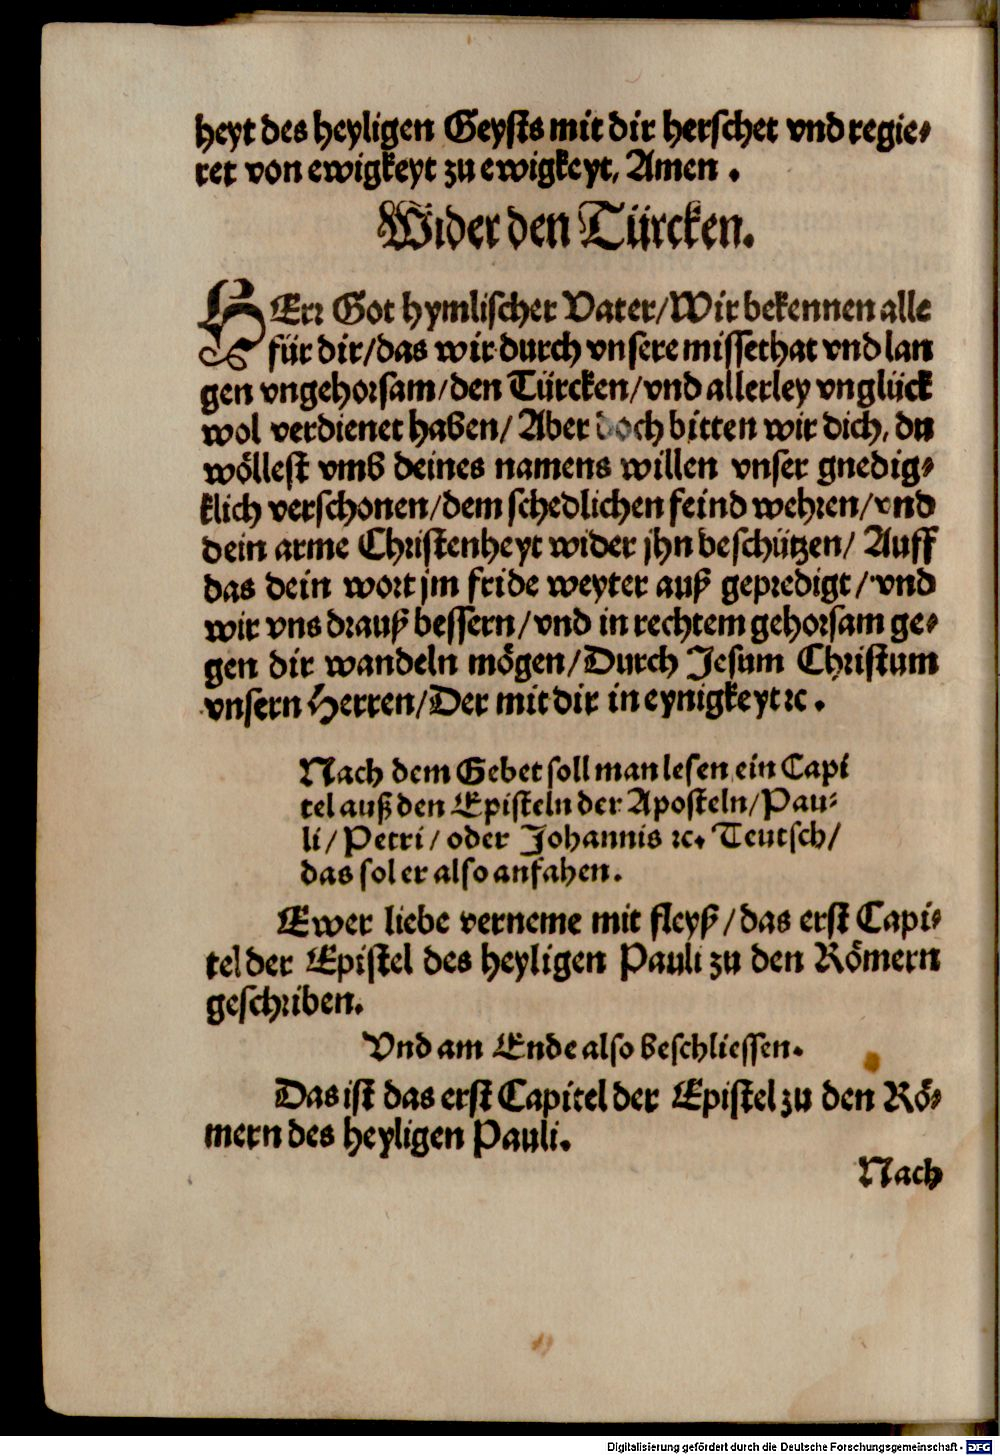 heyt des heyligen Geysts mit dir herschet vnd regie⸗
ret von ewigkeyt zu ewigkeyt, Amen .
Wider den Türcken.
HErr Got hymlischer Vater/Wir bekennen alle
für dir/das wir durch vnsere missethat vnd lan
gen vngehorsam/den Türcken/vnd allerley vnglück
wol verdienet haben/ Aber doch bitten wir dich, du
wöllest vmb deines namens willen vnser gnedig⸗
klich verschonen/dem schedlichen feind wehren/vnd
dein arme Christenheyt wider jhn beschützen/ Auff
das dein wort jm fride weyter auß gepredigt/vnd
wir vns drauß bessern/vnd in rechtem gehorsam ge⸗
gen dir wandeln mögen/Durch Jesum Christum
vnsern Herren/Der mit dir in eynigkeyt ꝛc .
Nach dem Gebet soll man lesen ein Capi
tel auß den Episteln der Aposteln/Pau⸗
li/Petri/oder Johannis ꝛc. Teutsch/
das sol er also anfahen.
Ewer liebe verneme mit fleyß/das erst Capi⸗
tel der Epistel des heyligen Pauli zu den Römern
geschriben.
Vnd am Ende also beschliessen.
Das ist das erst Capitel der Epistel zu den Rö⸗
mern des heyligen Pauli.
Nach
Digitalisierung gefördert durch die Deutsche Forschungsgemeinschaft - DFG